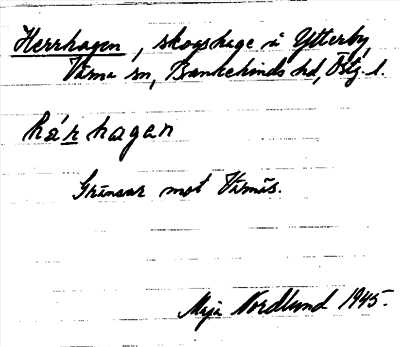 Herrhagen, skogshage å Ytterby,
Värna sn, Bankekinds hd, Östg. l.
hárhagan
Gränsar mot Värnäs.
Maja Nordlund 1945.